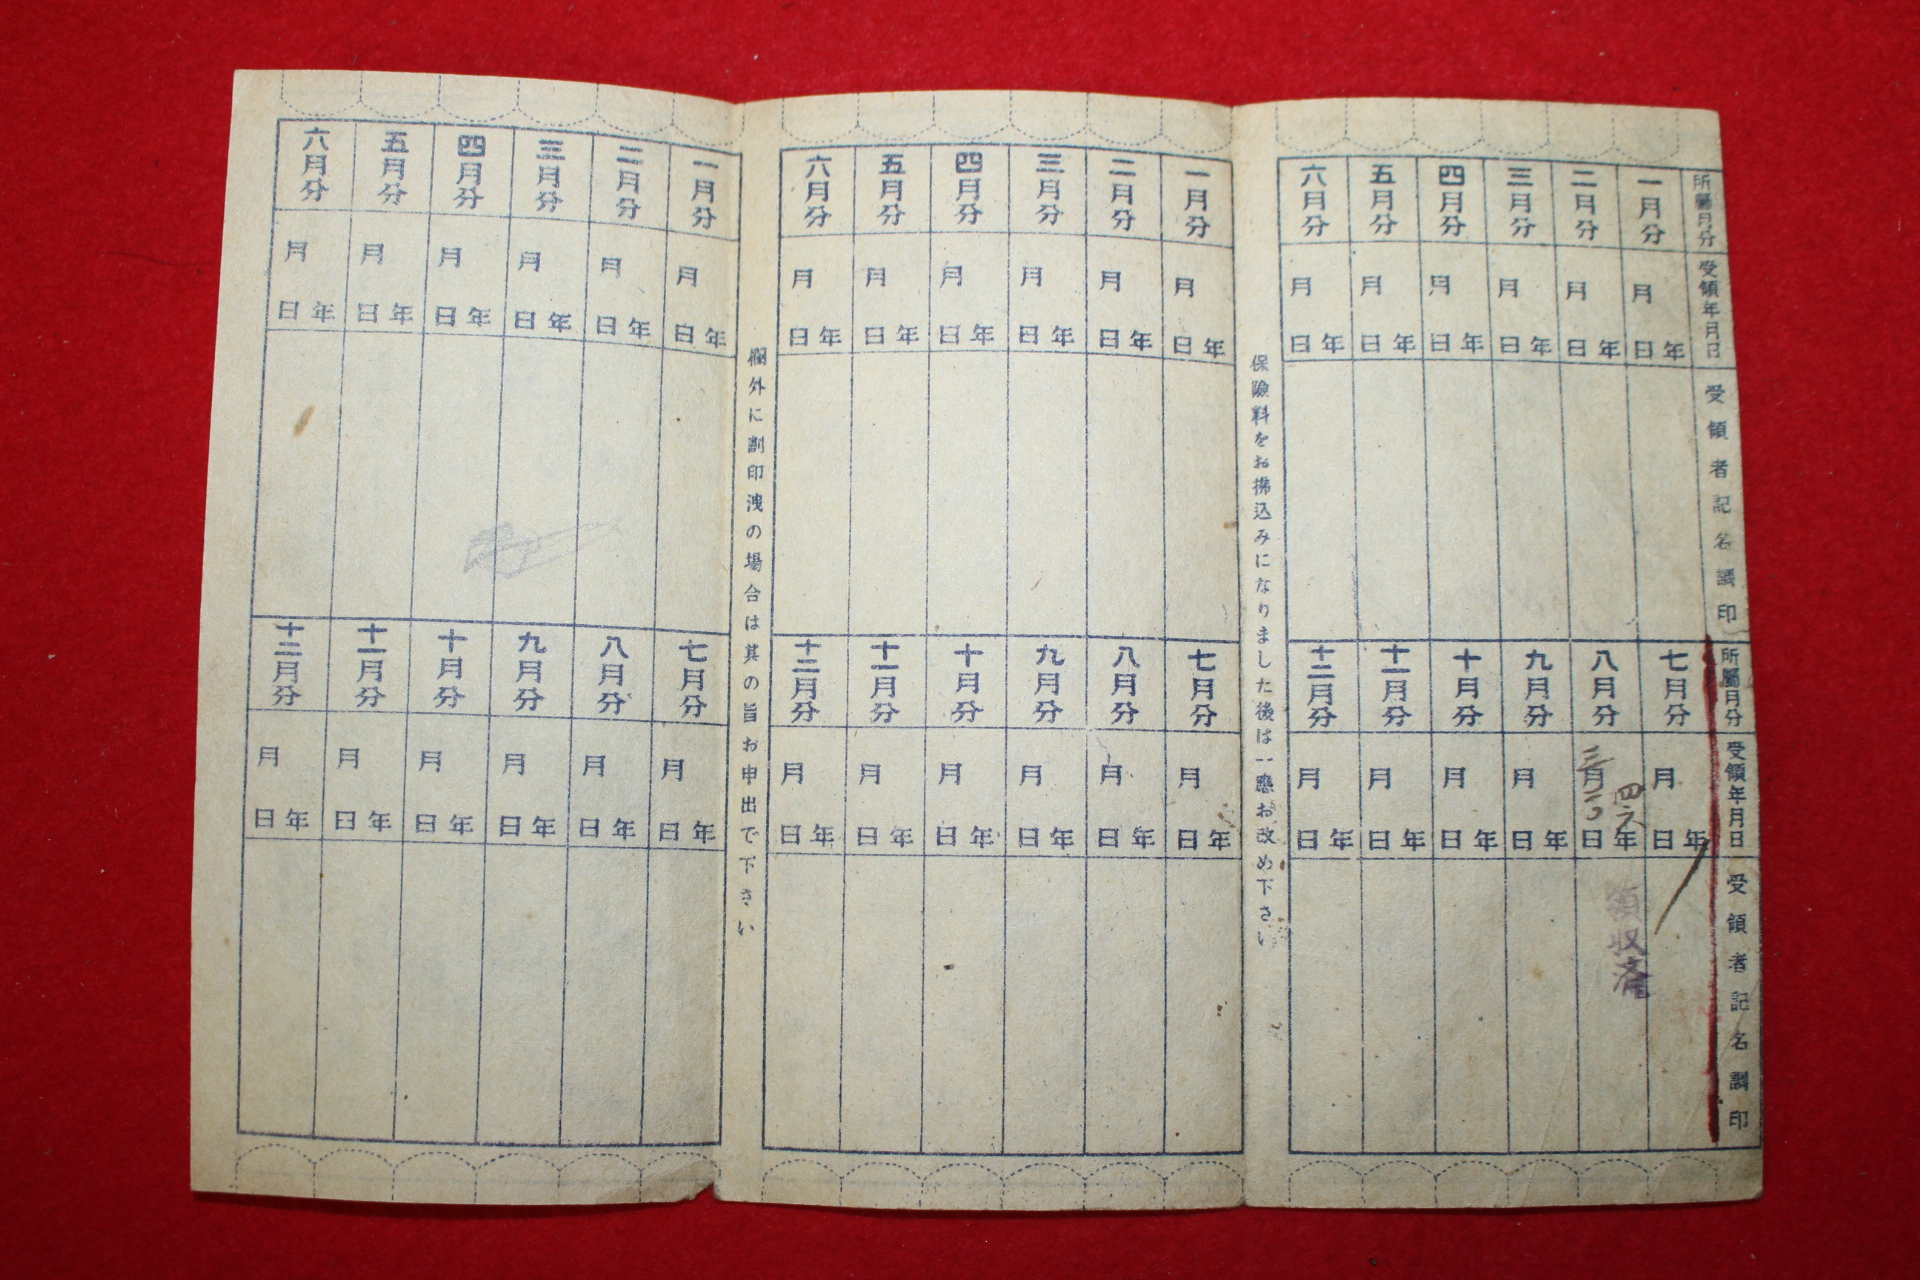 所屬月分
受領年月日
受領者記名調印
一月分
年月日
二月分
年月日
三月分
年月日
四月分
年月日
五月分
年月日
六月分
年月日
所屬月分
受領年月日
受領者記名調印
七月分
年月日
八月分
年月日
領収済
九月分
年月日
十月分
年月日
十一月分
年月日
十二月分
年月日
保險料をお拂込みになりました後は一應お改め下さい
一月分
年月日
二月分
年月日
三月分
年月日
四月分
年月日
五月分
年月日
六月分
年月日
七月分
年月日
八月分
年月日
九月分
年月日
十月分
年月日
十一月分
年月日
十二月分
年月日
欄外に割印洩の場合は其の旨お申出で下さい
一月分
年月日
二月分
年月日
三月分
年月日
四月分
年月日
五月分
年月日
六月分
年月日
七月分
年月日
八月分
年月日
九月分
年月日
十月分
年月日
十一月分
年月日
十二月分
年月日